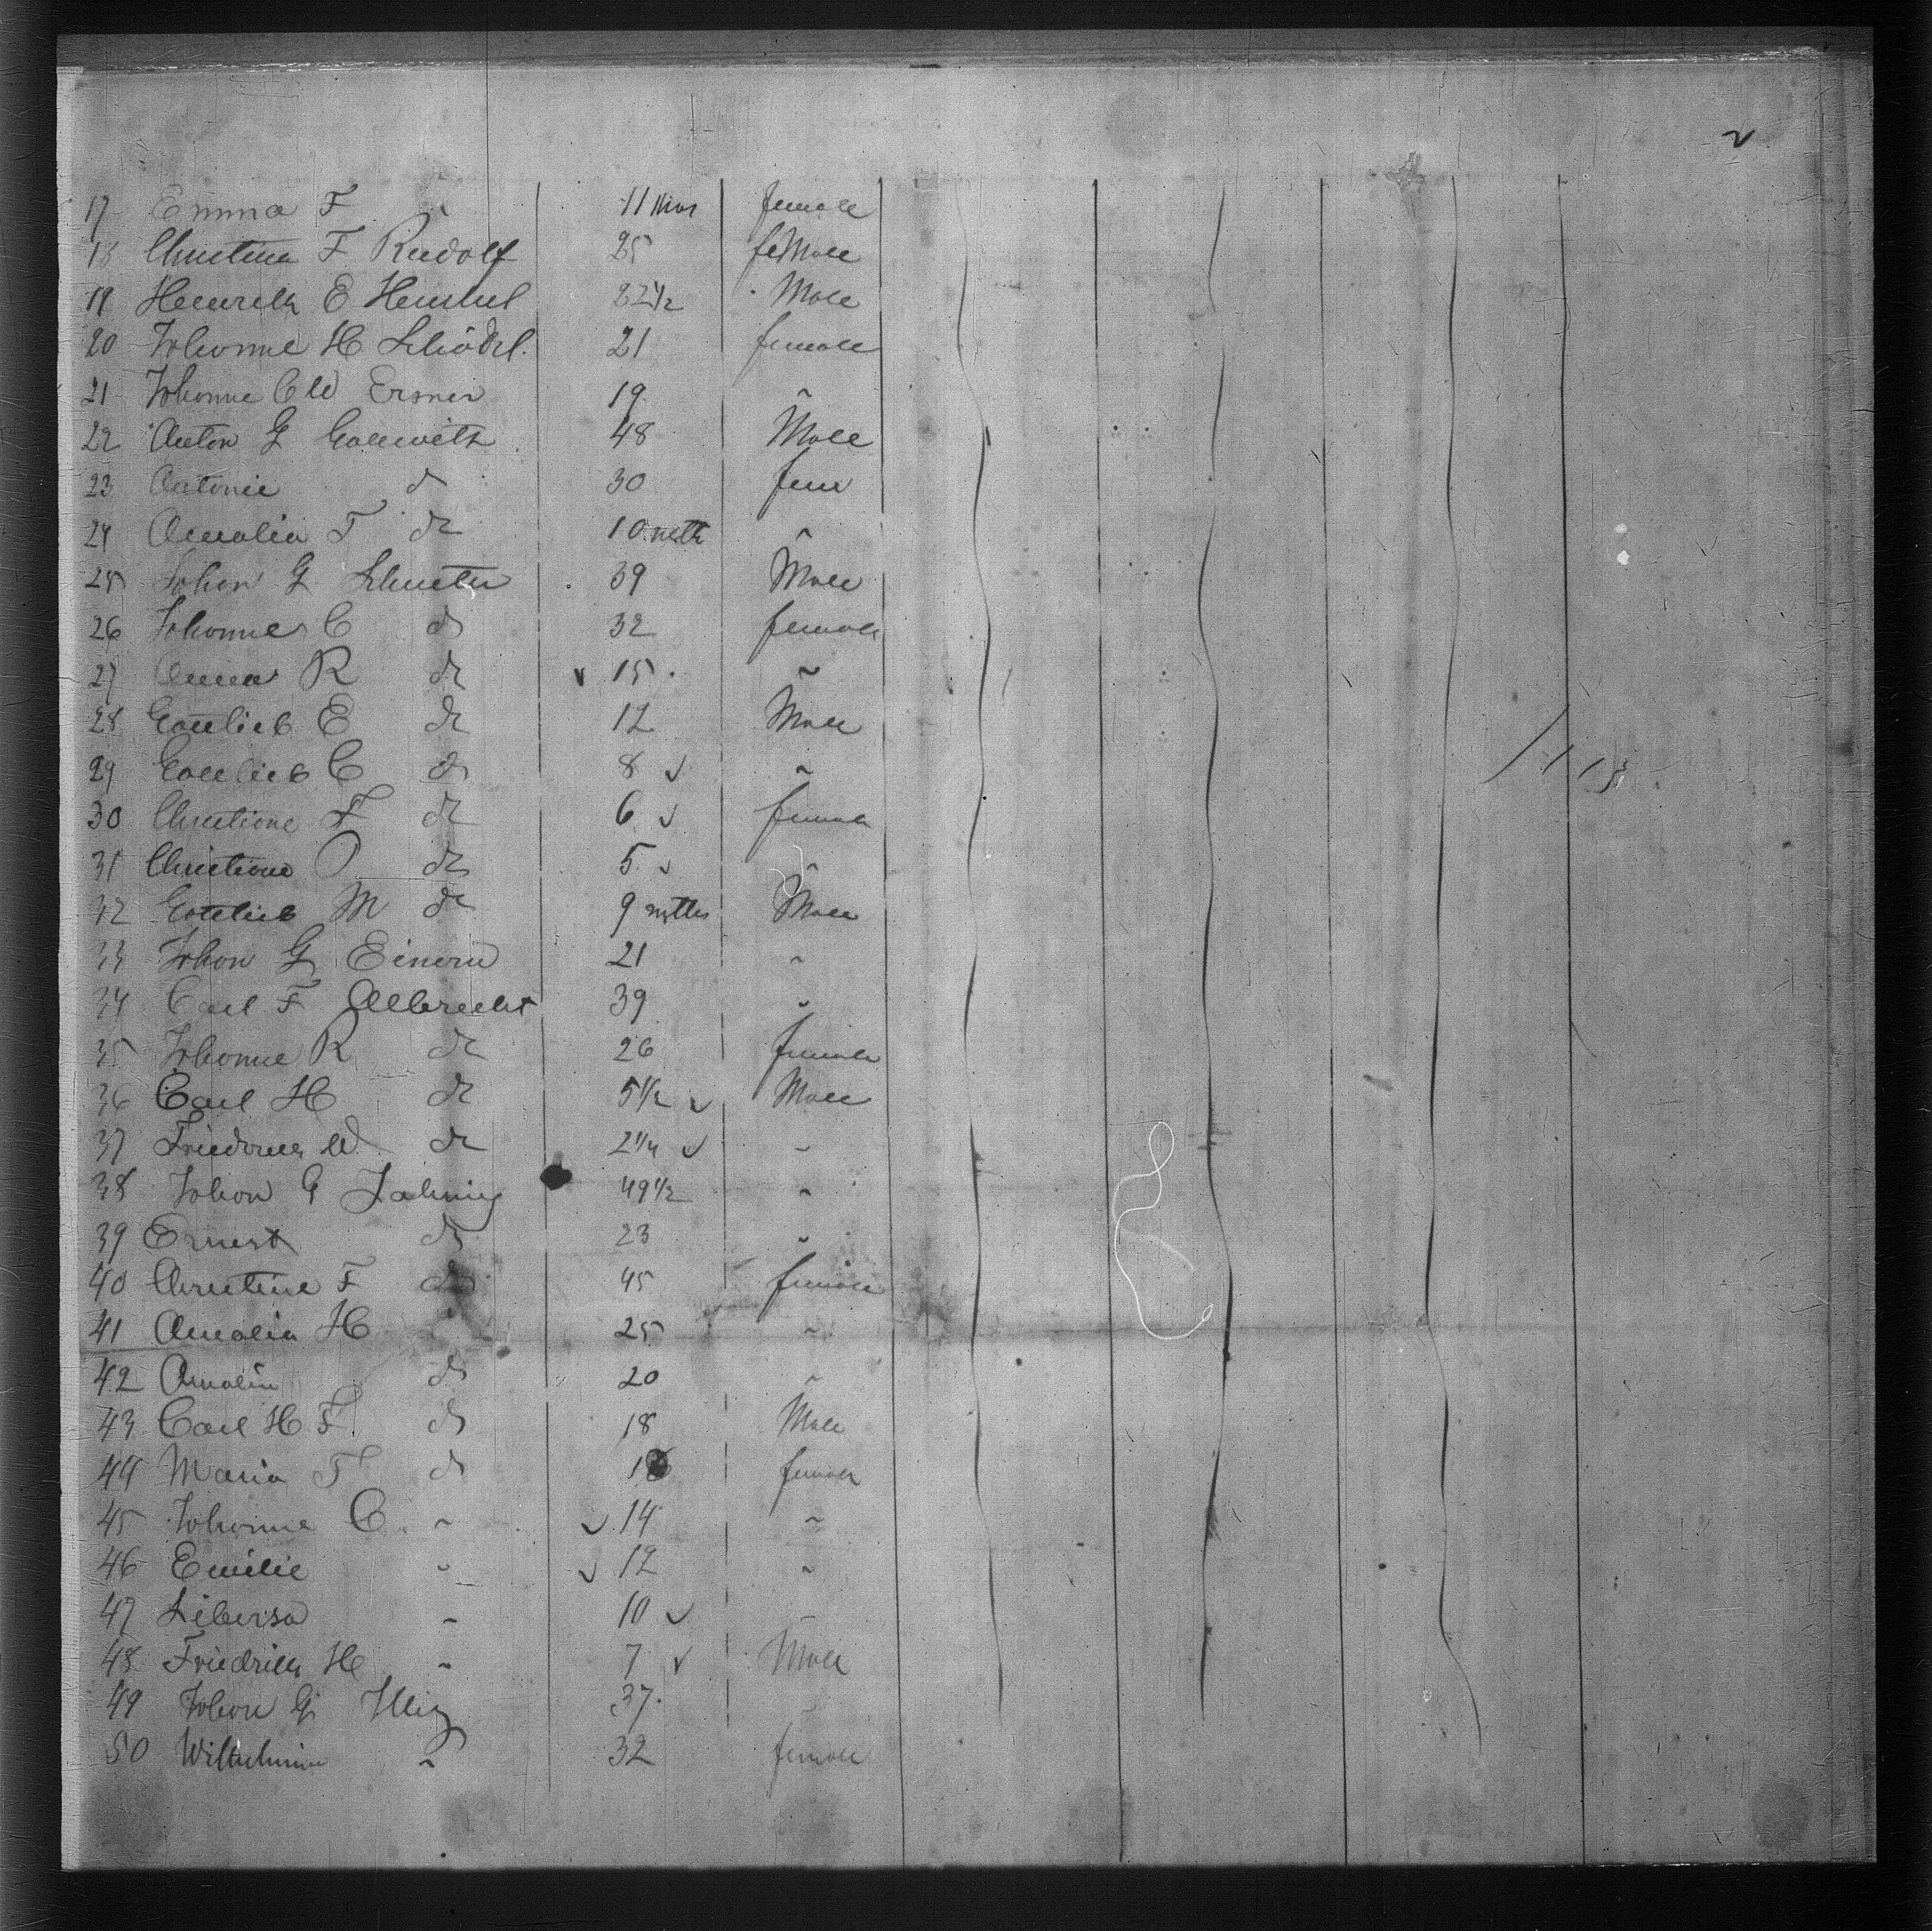 2
17 Emma F " 11 Mos female
18 Christina F Rudolf 25 female
19 Heinrich E Henschel 22 1/2 Male
20 Johanne H Schödel 21 female
21 Johanne C W Ersner 19 "
22 Anton G Gollwith 48 Male
23 Antonie do 30 fem
24 Amalia F do 10 mth "
25 Johan G Schuster 39 Male
26 Johanne C do 32 female
27 Anna R do 15 "
28 Gottlieb E do 12 Male
29 Gottlieb C do 8 "
30 Christiane F do 6 female
31 Christiane do 5 "
32 Gottlieb M do 9 mths Male
33 Johan G 21 "
34 Carl F Albrecht 39 "
35 Johanne R do 26 female
36 Carl H do 5 1/2 Male
37 W do 2 1/4 "
38 Johan G Jahnig 49 1/2 "
39 Ernest do 23 "
40 Christine F do 45 female
41 Amalia H " 25 "
42 Amalia do 20 "
43 Carl H F do 18 Male
44 Maria F do female
45 Johanne C " 14 "
46 Emilie " 12 "
47 " 10 "
48 Friedrich H " 7 Male
49 Johan G Illig 37 "
50 Wilhelmine " 32 female